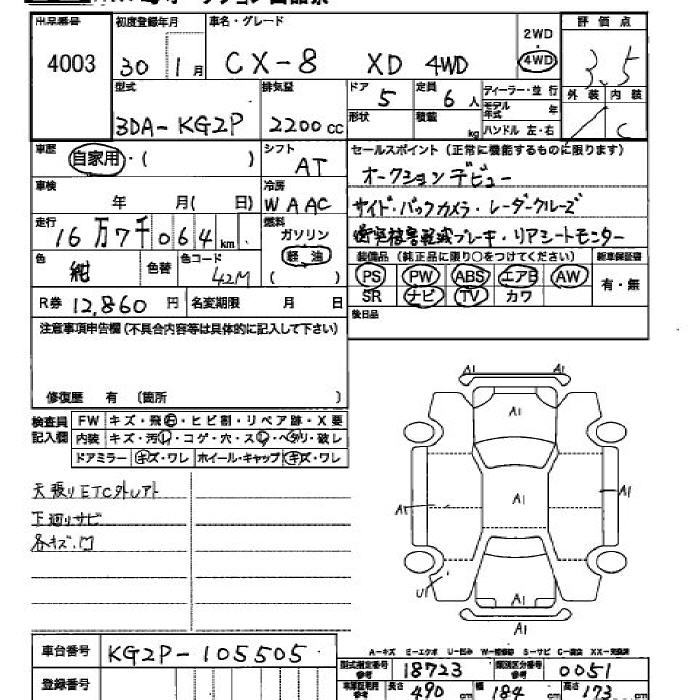 出品番号 初度登録年月 車名・グレード 2WD・4WD 評価点
4003 30 1月 CX-8 XD 4WD 3.5
型式 排気量 ドア 定員 ディーラー・並行 外装 内装
3DA-KG2P 2200cc 5 6人 モデル年式 年 C
形状 積載 kg ハンドル 左・右
車歴 シフト セールスポイント (正常に機能するものに限ります)
自家用・( ) AT オークションデビュー
車検 冷房
年 月( 日) WAAC サイド・バックカメラ・レーダークルーズ
走行 燃料
16万7千064km ガソリン 衝突被害軽減ブレーキ・リアシートモニター
軽油
( )
色 色替 色コード 装備品 (純正品に限り○をつけてください) 新車保証書
紺 42M PS PW ABS エアB AW 有・無
R券 12,860円 名変期限 月 日 SR ナビ TV カワ
後日品
注意事項申告欄 (不具合内容等は具体的に記入して下さい)
修復歴 有 (箇所 )
検査員記入欄 FW キズ・飛石・ヒビ割・リペア跡・X要
内装 キズ・汚レ・コゲ・穴・スレ・ヘタリ・破レ
ドアミラー キズ・ワレ ホイール・キャップ キズ・ワレ
天張りETC外しアト
下廻りサビ
各キズ・凹
A1
A1
A1
A1
A1
U1
A1
A1
A-キズ E-エクボ U-凹み W-補修跡 S-サビ C-腐食 XX-交換済
車台番号 KG2P-105505
登録番号
型式指定番号 参考 18723 類別区分番号 参考 0051
長さ 490 cm 幅 184 cm 高さ 173 cm